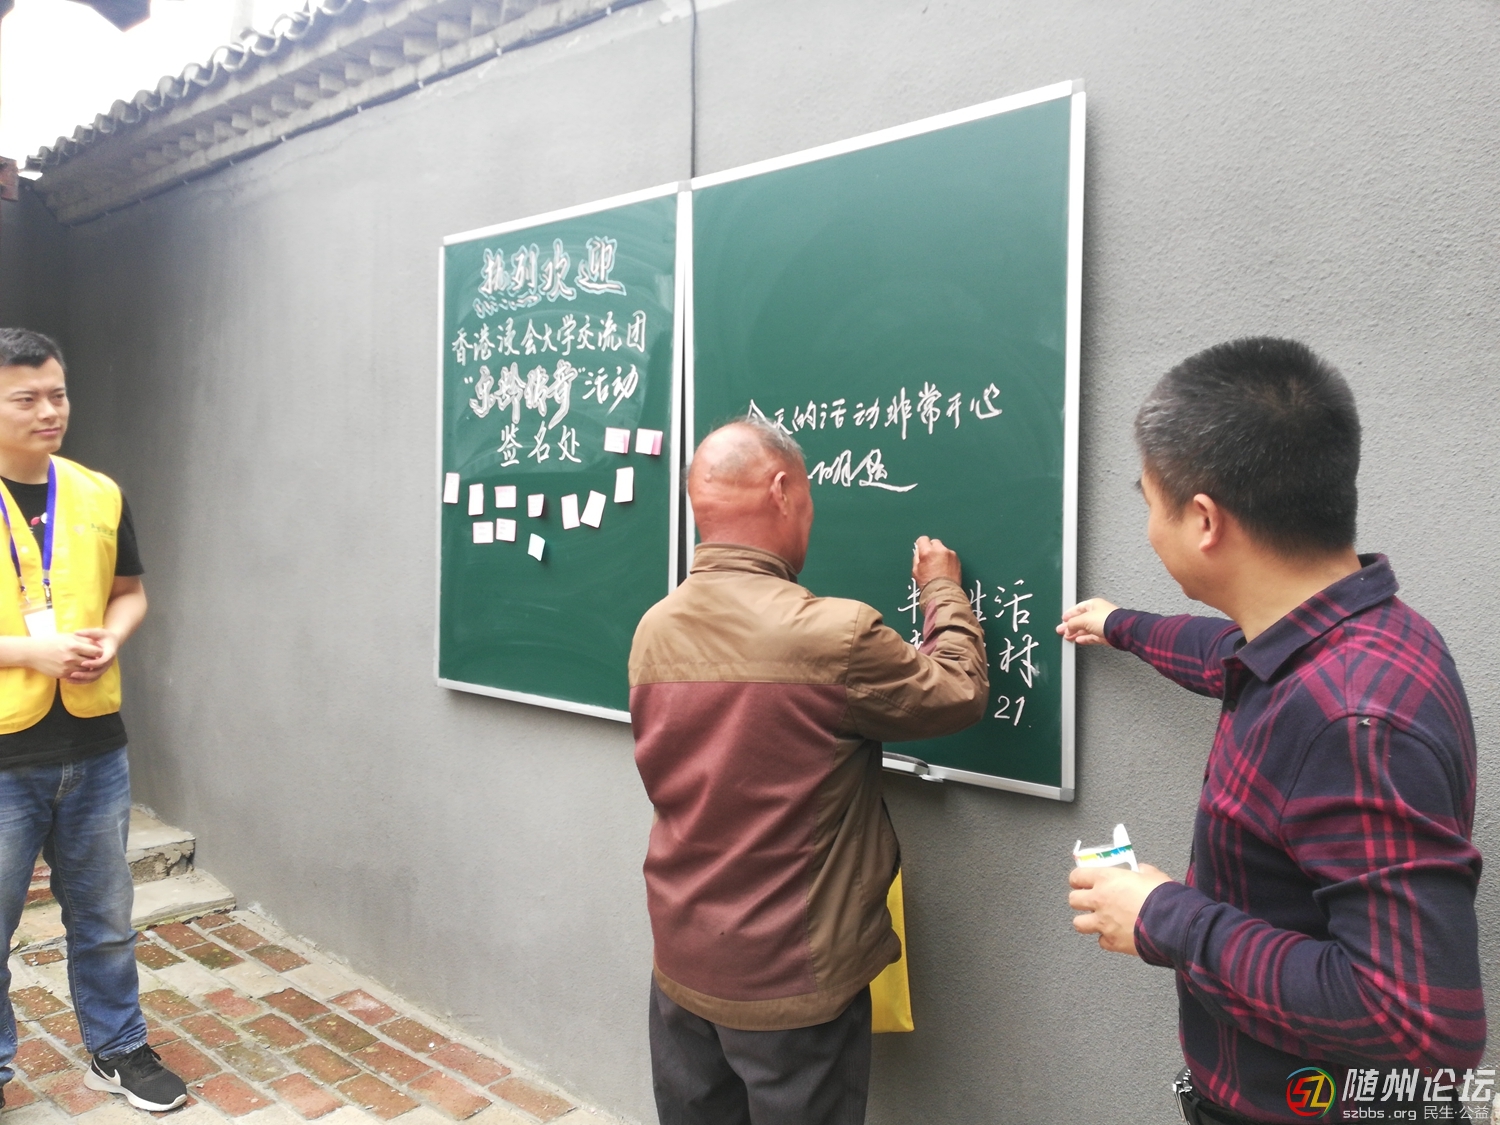 热烈欢迎
香港浸会大学交流团
"乐龄传奇"活动
签名处
今天的活动非常开心
明
半 生活
村
21
随州论坛
szbbs.org 民生·公益